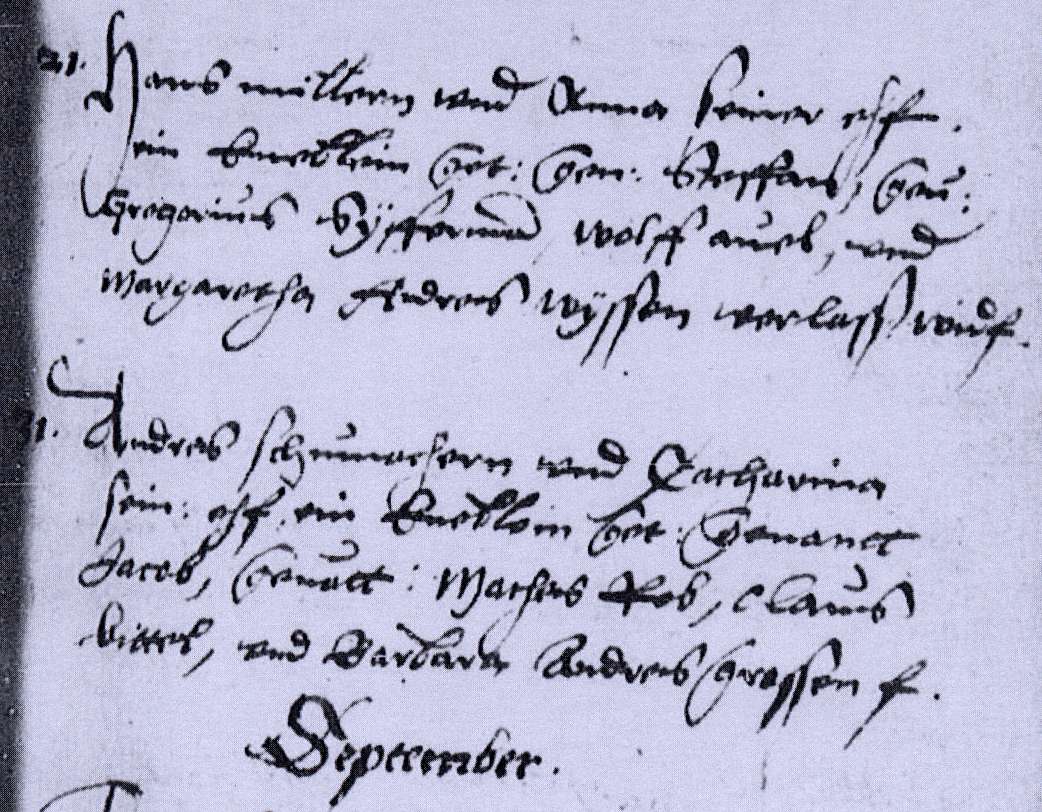 21. Hans müllern und Anna seiner ehf.
ein Kneblein get: gen: Steffan, Gev:
Gregorius Sÿfferman, Wolff, und
Margaretha Andres Wÿssen verlass widf.
31. Andres schumachern und Catharina
sein: ehf. ein Kneblein get: Genantt
Jacob, Gevatt: Mathis Reb, Claus
Bittel, und Barbara Andreis Grossen f.
September.